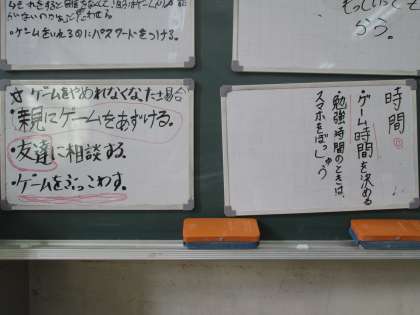 ・ゲームをいれるのにパスワードをつける。
もっていって
から。
☆ゲームをやめれなくなった場合
・親にゲームをあずける。
・友達に相談する。
・ゲームをぶっこわす。
時間
・ゲーム時間を決める
・勉強時間のときは、
スマホをぼっしゅう